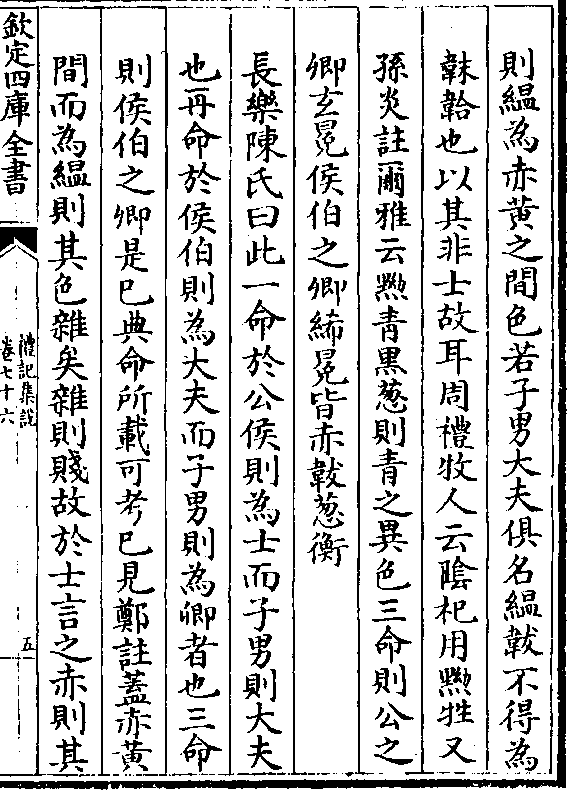 則緼為赤黄之間色若子男大夫俱名緼韍不得為
韎韐也以其非士故耳周禮牧人云隂杞用黝牲又
孫炎註爾雅云黝青黑葱則青之異色三命則公之
卿玄冕侯伯之卿絺冕皆赤韍葱衡
長樂陳氏曰此一命於公侯則為士而子男則大夫
也再命於侯伯則為大夫而子男則為卿者也三命
則侯伯之卿是已典命所載可考已見鄭註蓋赤黄
間而為緼則其色雜矣雜則賤故於士言之赤則其
欽定四庫全書
禮記集說
卷七十六
五